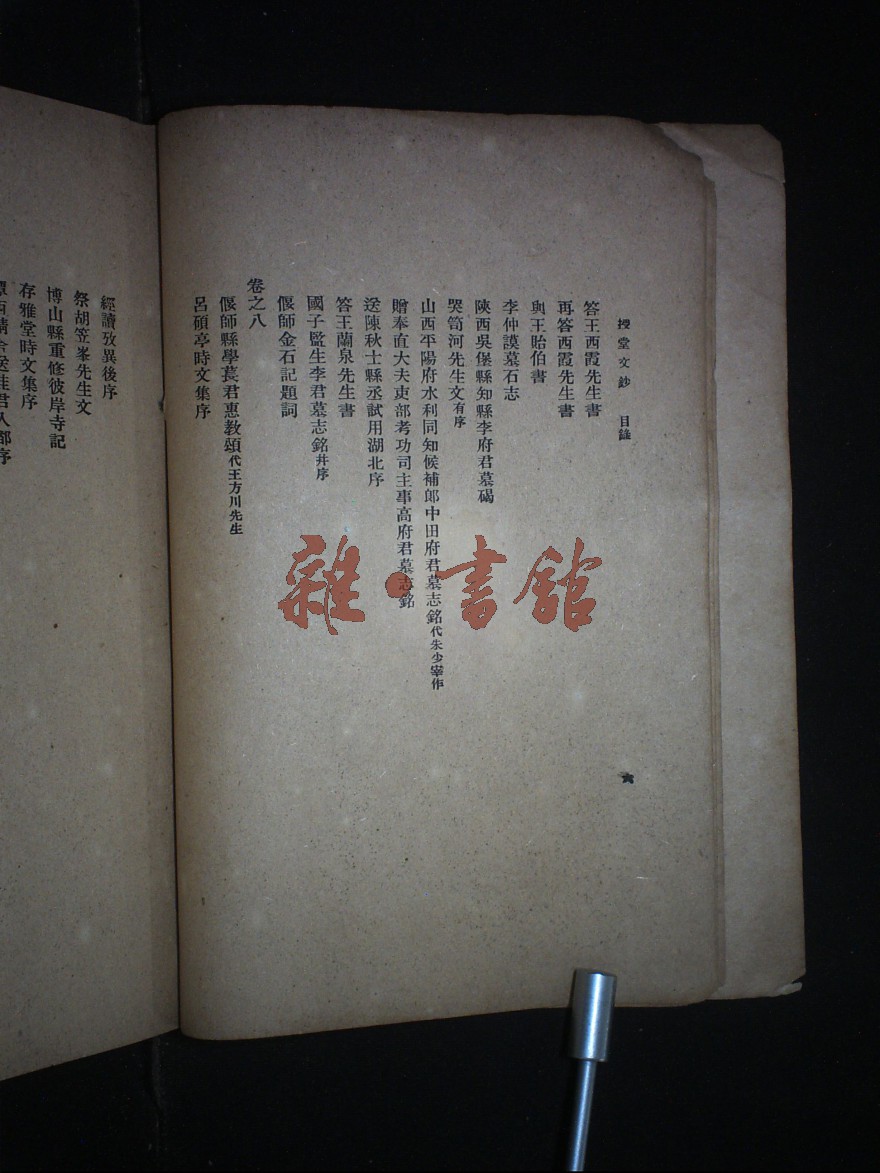 授堂文鈔 目錄
六
答王西霞先生書
再答西霞先生書
與王貽伯書
李仲謨墓石志
陝西吳堡縣知縣李府君墓碣
哭笥河先生文有序
山西平陽府水利同知候補郎中田府君墓志銘代朱少宰作
贈奉直大夫吏部考功司主事高府君墓志銘
送陳秋士縣丞試用湖北序
答王蘭泉先生書
國子監生李君墓志銘并序
偃師金石記題詞
卷之八
偃師縣學萇君惠教頌代王方川先生
呂碩亭時文集序
經讀攷異後序
祭胡笠峯先生文
博山縣重修彼岸寺記
存雅堂時文集序
雜·書館